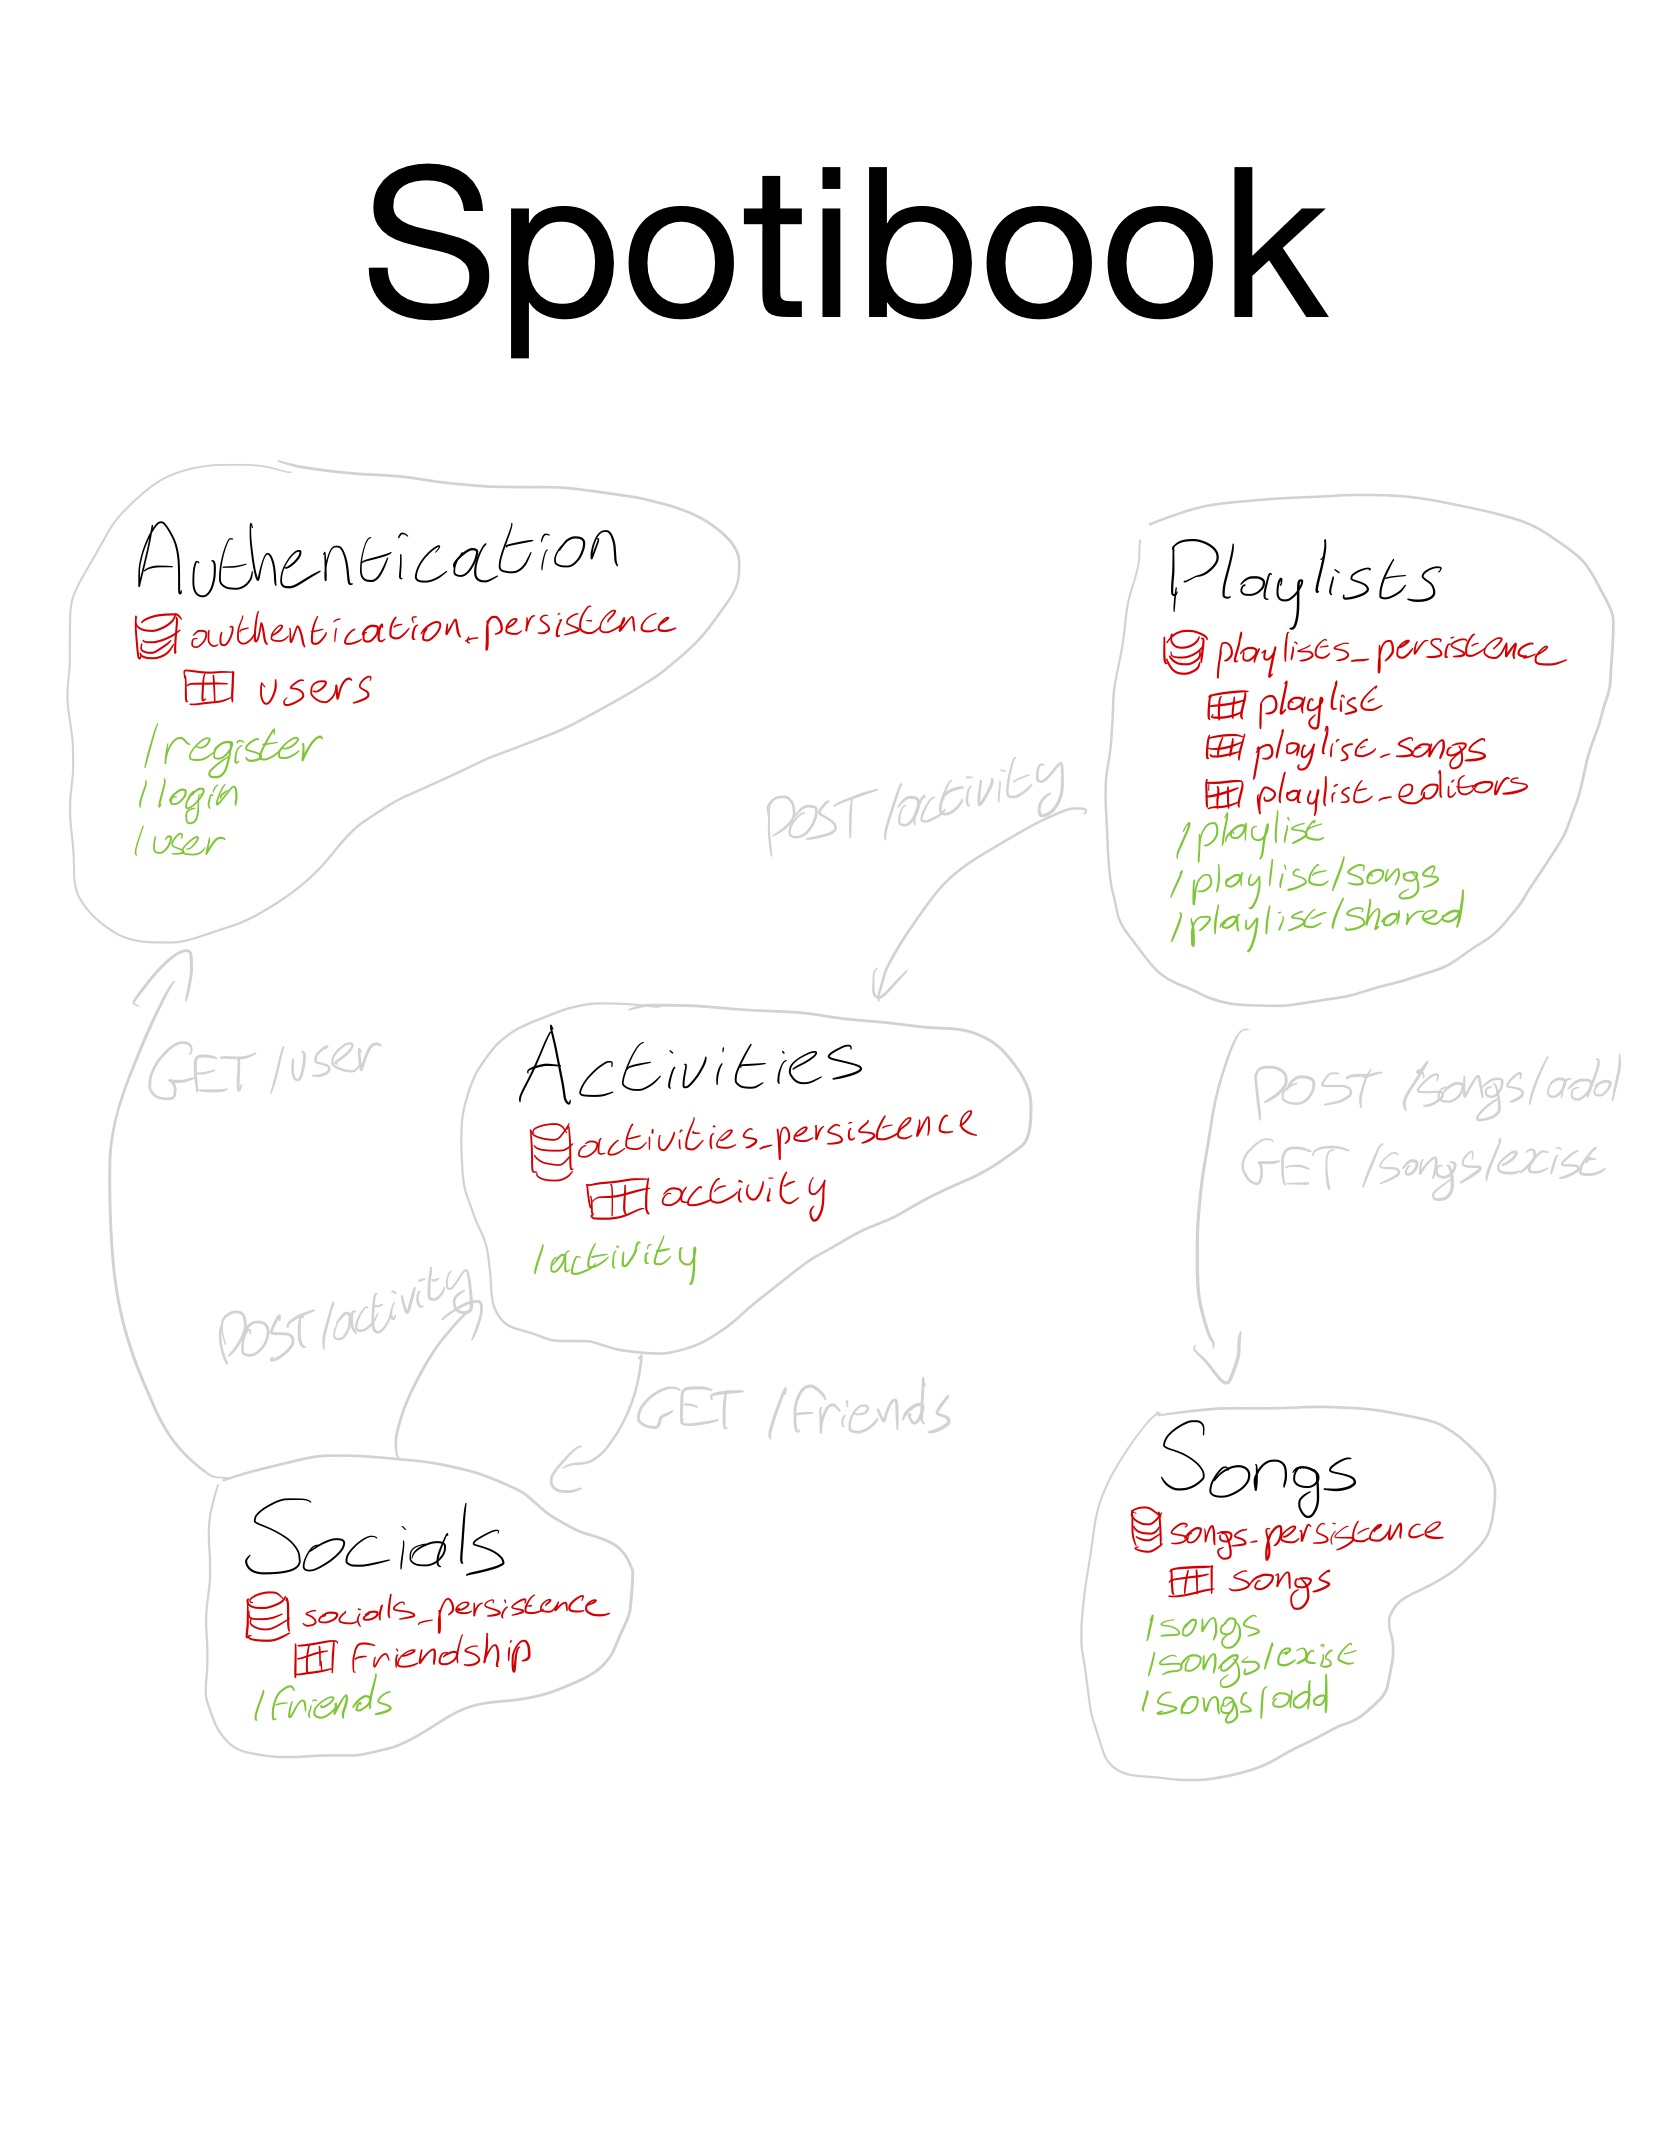 Spotibook
Authentication
authentication_persistence
users
/register
/login
/user
Playlists
playlists_persistence
playlist
playlist_songs
playlist_editors
/playlist
/playlist/songs
/playlist/shared
POST /activity
GET /user
Activities
activities_persistence
activity
/activity
POST /songs/add
GET /songs/exist
POST /activity
GET /friends
Socials
socials_persistence
friendship
/friends
Songs
songs_persistence
songs
/songs
/songs/exist
/songs/add